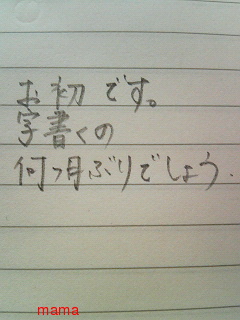 お初です。
字書くの
何ヶ月ぶりでしょう.
mama